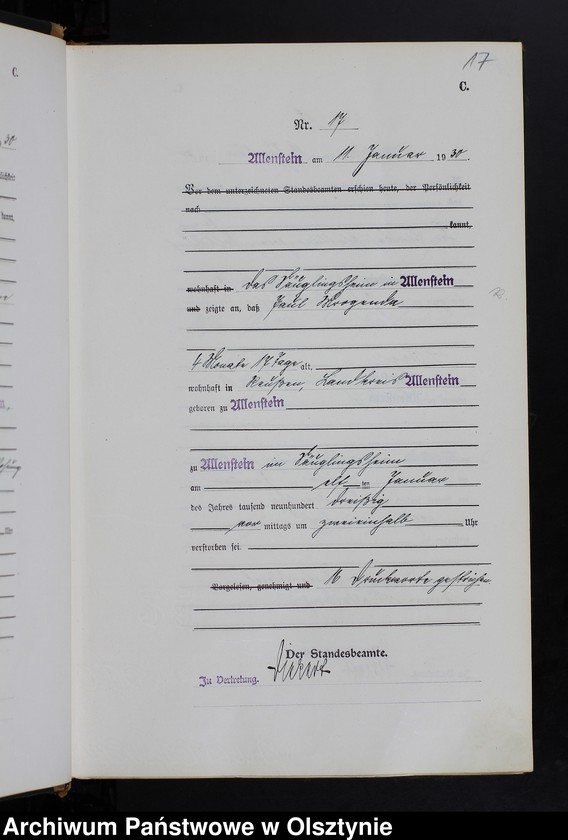 17
C.
Nr. 17
Allenstein am 11. Januar 1930.
Vor dem unterzeichneten Standesbeamten erschien heute, der Persönlichkeit
nach
kannt,
wohnhaft in das Säuglingsheim in Allenstein
und zeigte an, daß Paul
4 Monate 17 Tage alt,
wohnhaft in Reußen, Landkreis Allenstein
geboren zu Allenstein
zu Allenstein im Säuglingsheim
am elf ten Januar
des Jahres tausend neunhundert dreißig
vor mittags um zweieinhalb Uhr
verstorben sei.
Vorgelesen, genehmigt und 16 Druckworte gestrichen
Der Standesbeamte.
In Vertretung.
Archiwum Państwowe w Olsztynie